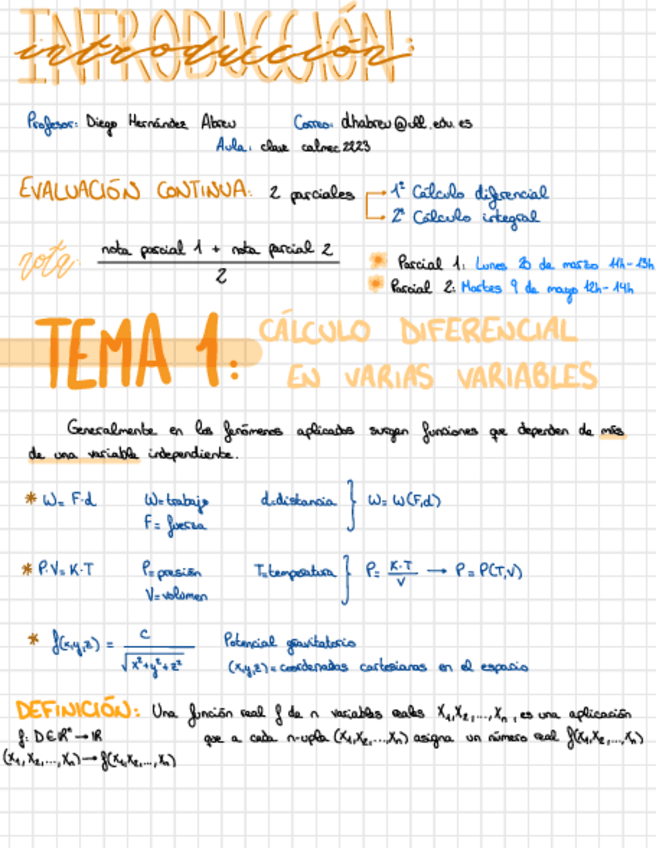 INTRODUCCIÓN:
introducción
Profesor: Diego Hernández Abreu Correo: dhabreu@ull.edu.es
Aula: clave calmec2223
EVALUACIÓN CONTINUA: 2 parciales 1º Cálculo diferencial
2º Cálculo integral
nota: nota parcial 1 + nota parcial 2 / 2
Parcial 1: Lunes 20 de marzo 11h-13h
Parcial 2: Martes 9 de mayo 12h-14h
TEMA 1: CÁLCULO DIFERENCIAL
EN VARIAS VARIABLES
Generalmente en los fenómenos aplicados surgen funciones que dependen de más
de una variable independiente.
* W = F·d W = trabajo d = distancia } W = W(F,d)
F = fuerza
* P·V = K·T P = presión T = temperatura } P = K·T / V → P = P(T,V)
V = volumen
* f(x,y,z) = C / √x²+y²+z² Potencial gravitatorio
(x,y,z) = coordenadas cartesianas en el espacio
DEFINICIÓN: Una función real f de n variables reales X₁,X₂,...,Xₙ, es una aplicación
f: D∈ℝⁿ → ℝ que a cada n-upla (X₁,X₂,...,Xₙ) asigna un número real f(X₁,X₂,...,Xₙ)
(X₁,X₂,...,Xₙ) → f(X₁,X₂,...,Xₙ)